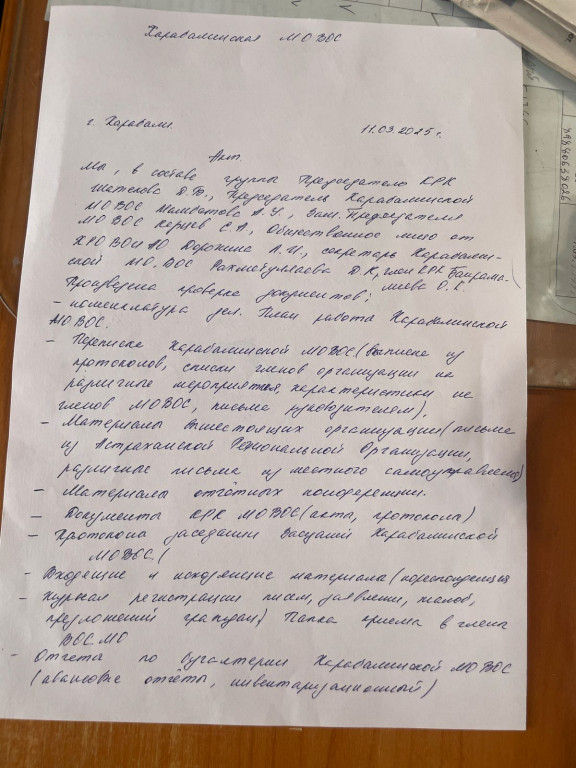 Харабалинская МО ВОС
г. Харабали.
11.03.2025 г.
Акт.
Мы, в составе группы Председателя КРК
Шателова Д.Б., Председатель Харабалинской
МОВОС Мамбетова А.У., Зам. Председателя
МО ВОС Керцев С.А., Общественное лицо от
ХРО ВОИ АО Доронина Л.И., секретарь Харабалин-
ской МО. ВОС Рахметуллаева Д.К, член КРК Байрама-
лиева О.К.
Произведена проверка документов:
- номенклатура дел. План работы Харабалинской
МО ВОС.
- Переписка Харабалинской МОВОС (выписка из
протоколов, списки членов организации на
различные мероприятия, характеристики на
членов МОВОС, письма руководителям),
- Материалы вышестоящих организации (письма
из Астраханской Региональной Организации,
различные письма из местного самоуправления)
- Материалы отчётных конференции.
- Документы КРК МОВОС (акты, протоколы)
- Протокола заседании Харабалинской
МОВОС. (
- Входящие и исходящие материала (кореспонденция
- Журнал регистрации писем, заявлении, жалоб,
предложений граждан) Папка приема в члены
ВОС МО
- Отчеты по бугалтерии Харабалинской МО ВОС
(авансовые отчёты, инвентаризационный)